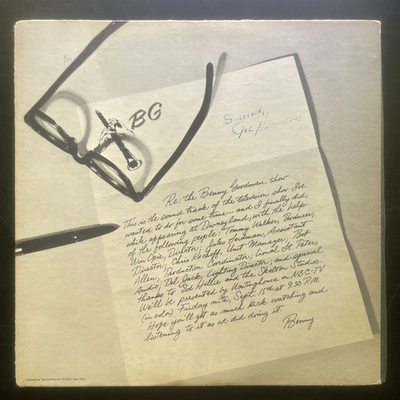 BG
Sincerely,
Re: the Benny Goodman show
This is the sound track of the television show I've
wanted to do for some time... and I finally did,
while appearing at Disneyland, with the help
of the following people: Tommy Walker, Producer,
Director, Jules Assistant
Director, Chris Unit Manager, Bob
Allen, Production Coordinator, Lionel St. Peter,
Audio; Del Jack, Lighting Director, and special
thanks to Ed Hillie and the Skelton Studios.
We'll be presented by Westinghouse on NBC-TV
(in color) Friday nite, Sept. 15th at 9:30 P.M.
Hope you'll get as much kick watching and
listening to it as we did doing it.
Benny